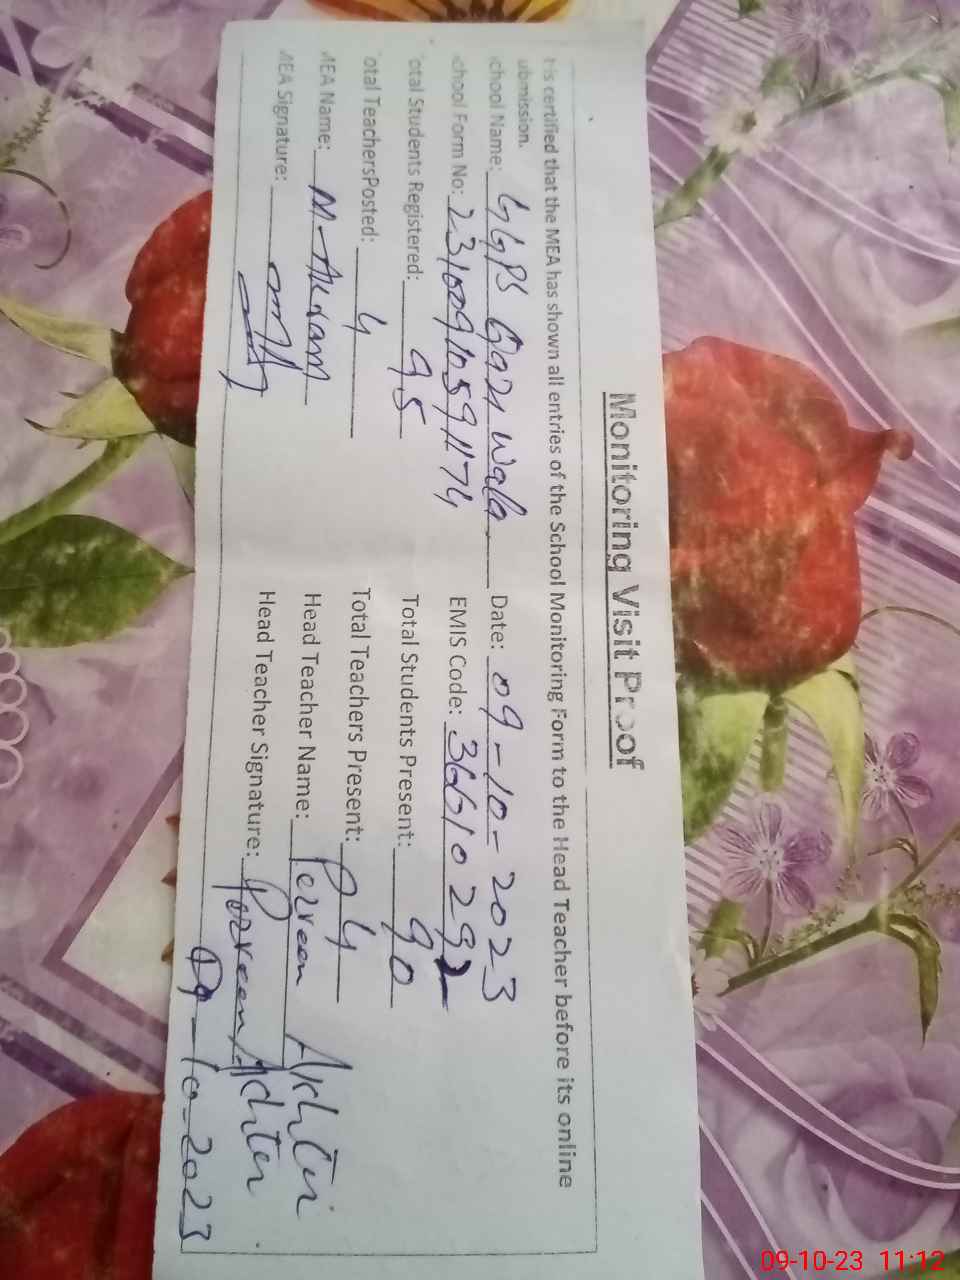 Monitoring Visit Proof
t is certified that the MEA has shown all entries of the School Monitoring Form to the Head Teacher before its online
ubmission.
chool Name: GGPS Qazi Wala Date: 09-10-2023
chool Form No: 23100910591174 EMIS Code: 36610292
otal Students Registered: 95 Total Students Present: 90
otal TeachersPosted: 4 Total Teachers Present: 4
MEA Name: M-Akram Head Teacher Name: Perveen Achter
MEA Signature: Head Teacher Signature: Perveen Achter
09-10-2023
09-10-23 11:12